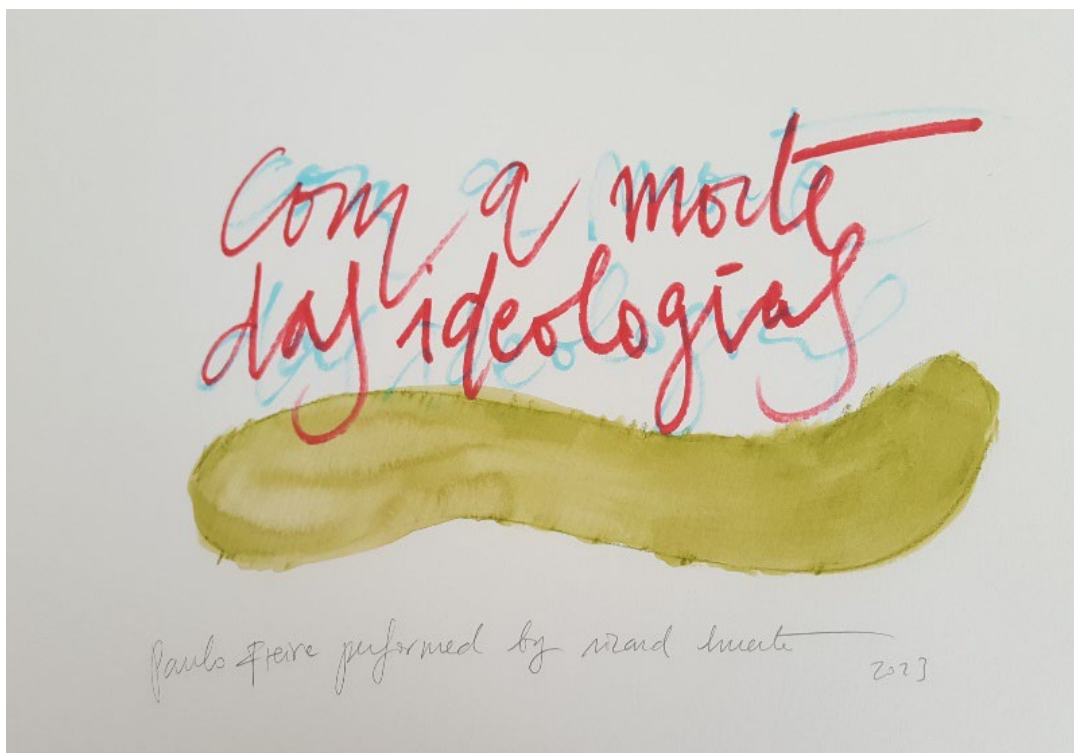 com a morte
das ideologias
Paulo Freire performed by ricard huerta
2023